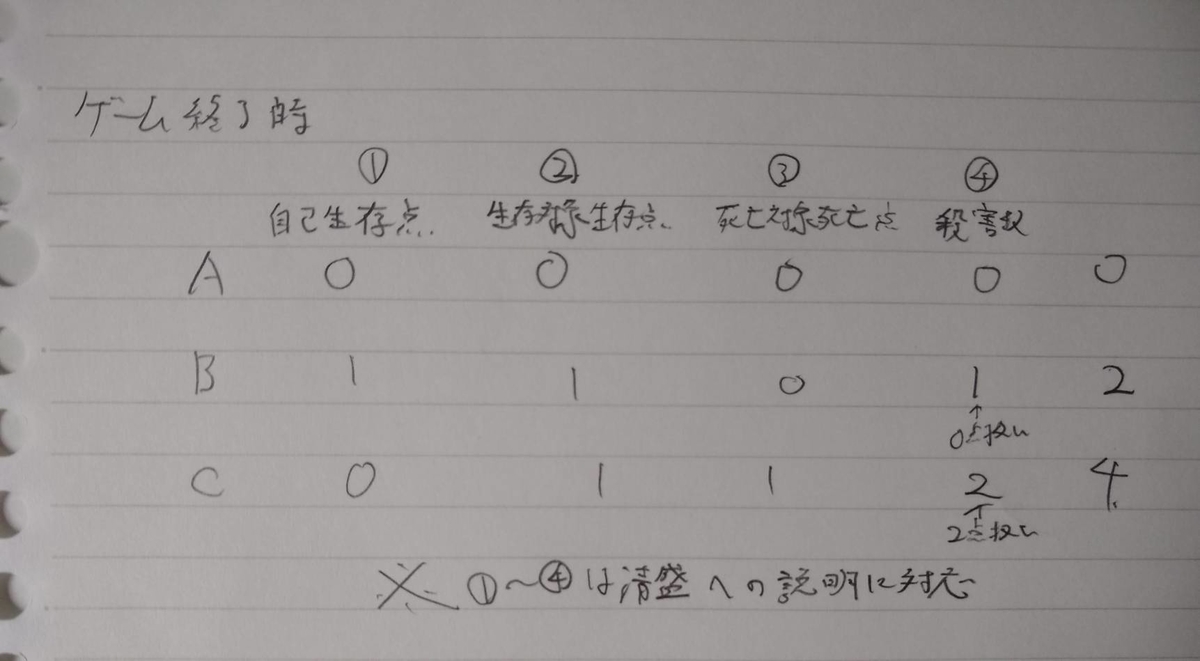 ゲーム終了時
① ② ③ ④
自己生存点 生存対象生存点 死亡対象死亡点 殺害数
A 0 0 0 0 0
B 1 1 0 1 2
↑
0点扱い
C 0 1 1 2 4
↑
2点扱い
※ ①〜④は清盛への説明に対応